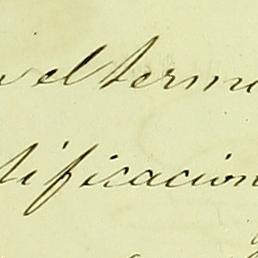 el termi
tificacion